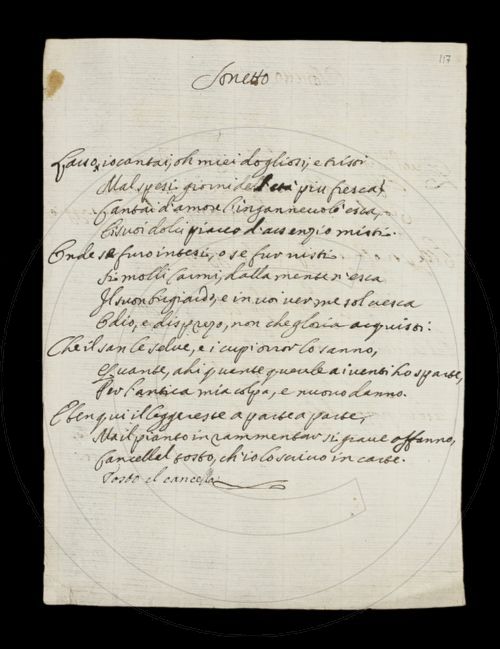 117
Sonetto
Lasso, io cantai, oh miei dogliosi, e tristi
Mal spesi giorni de l'età più fresca!
Cantai d'amor l'ingannevole esca,
E i suoi dolci piacer d'assenzio misti.
Onde se furo intesi, o se fur visti
Sì molli carmi, dalla mente n'esca
Il suon bugiardo, e in voi ver me sol cresca
Odio, e disprezzo, non che gloria acquisti.
Che il san le selve, e i cupi orror lo sanno,
E quante, ahi quante querele ai venti ho sparte,
Per l'antica mia colpa, e nuovo danno.
E ben qui il leggereste a parte a parte,
Ma il pianto in rammentar sì grave affanno,
Cancella tosto, ch'io lo scrivo in carte.
Tosto il cancella